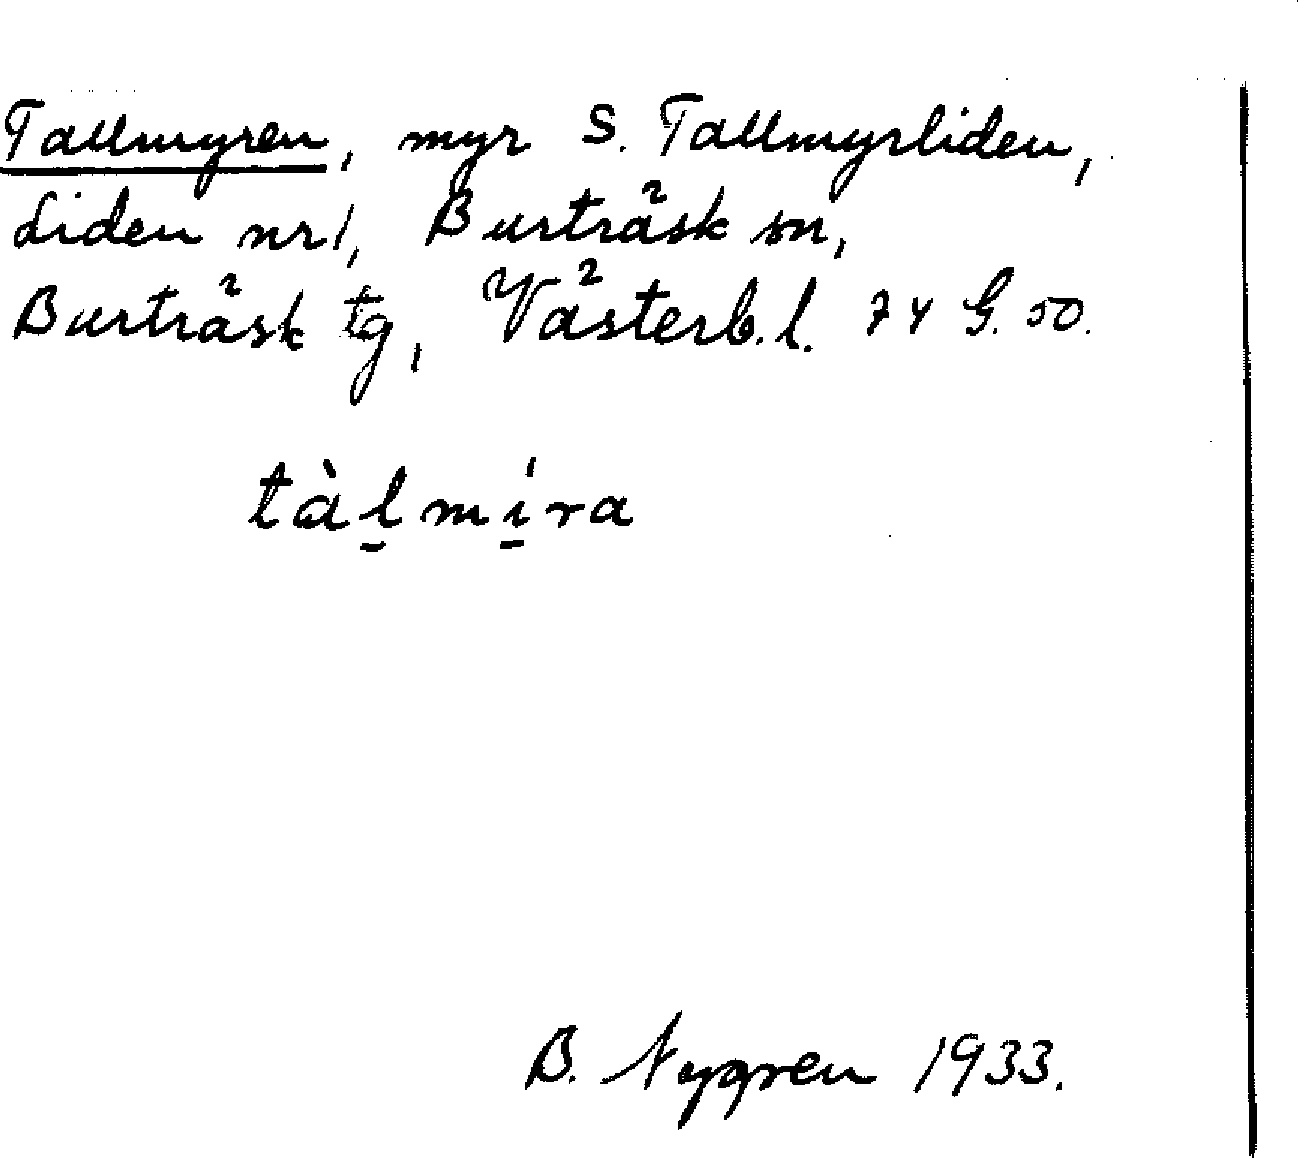 Tallmyren, myr S. Tallmyrliden,
Liden nr 1, Burträsk sn,
Burträsk tg, Västerb. l. 74 G. 50.
tàl̠mí̠ra
B. Nygren 1933.